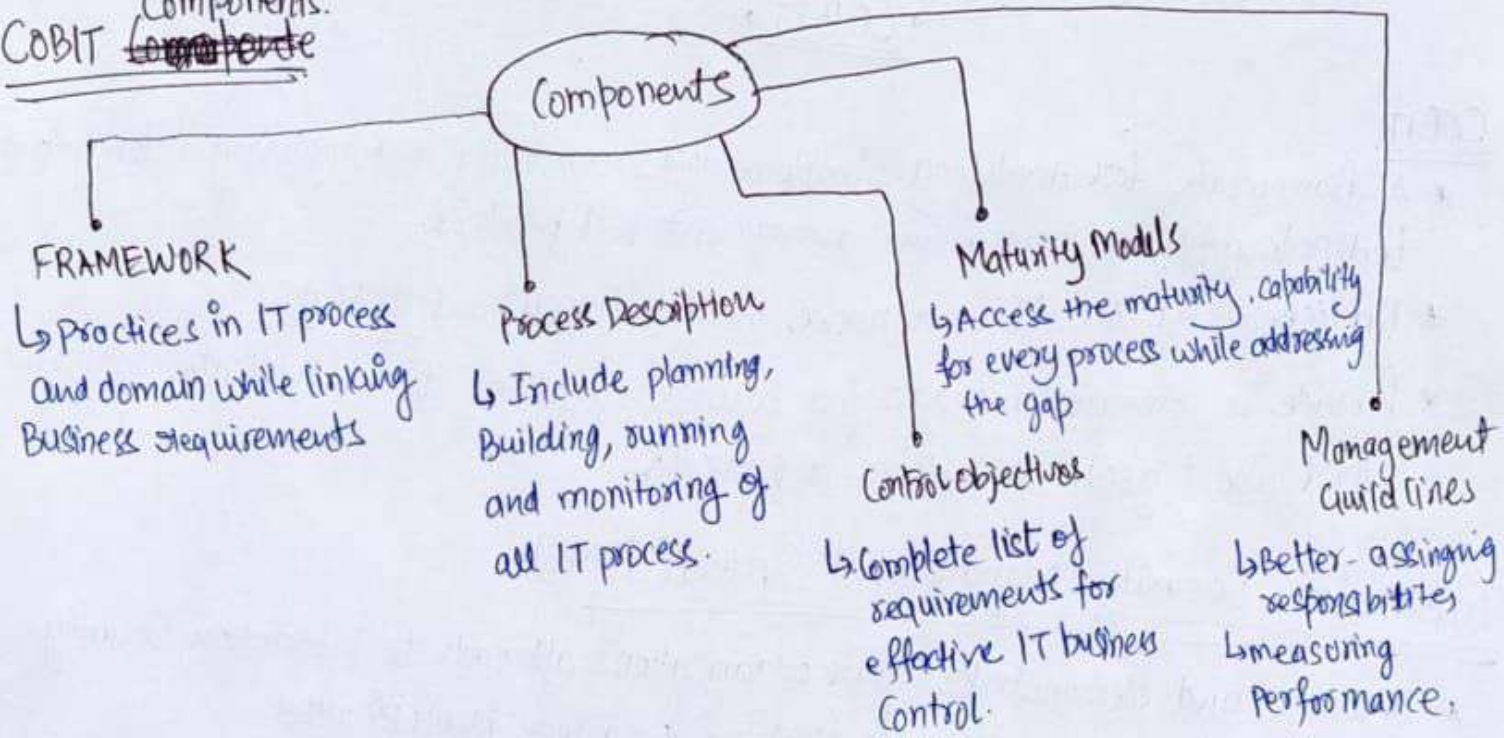 Components.
COBIT
Components
FRAMEWORK
↳ Practices in IT process
and domain while linking
Business requirements
Process Description
↳ Include planning,
Building, running
and monitoring of
all IT process.
Control objectives
↳ Complete list of
requirements for
effective IT business
Control.
Maturity Models
↳ Access the maturity, capability
for every process while addressing
the gap
Management
Guildlines
↳ Better - assingnig
responsibitites
↳ measuring
Performance.